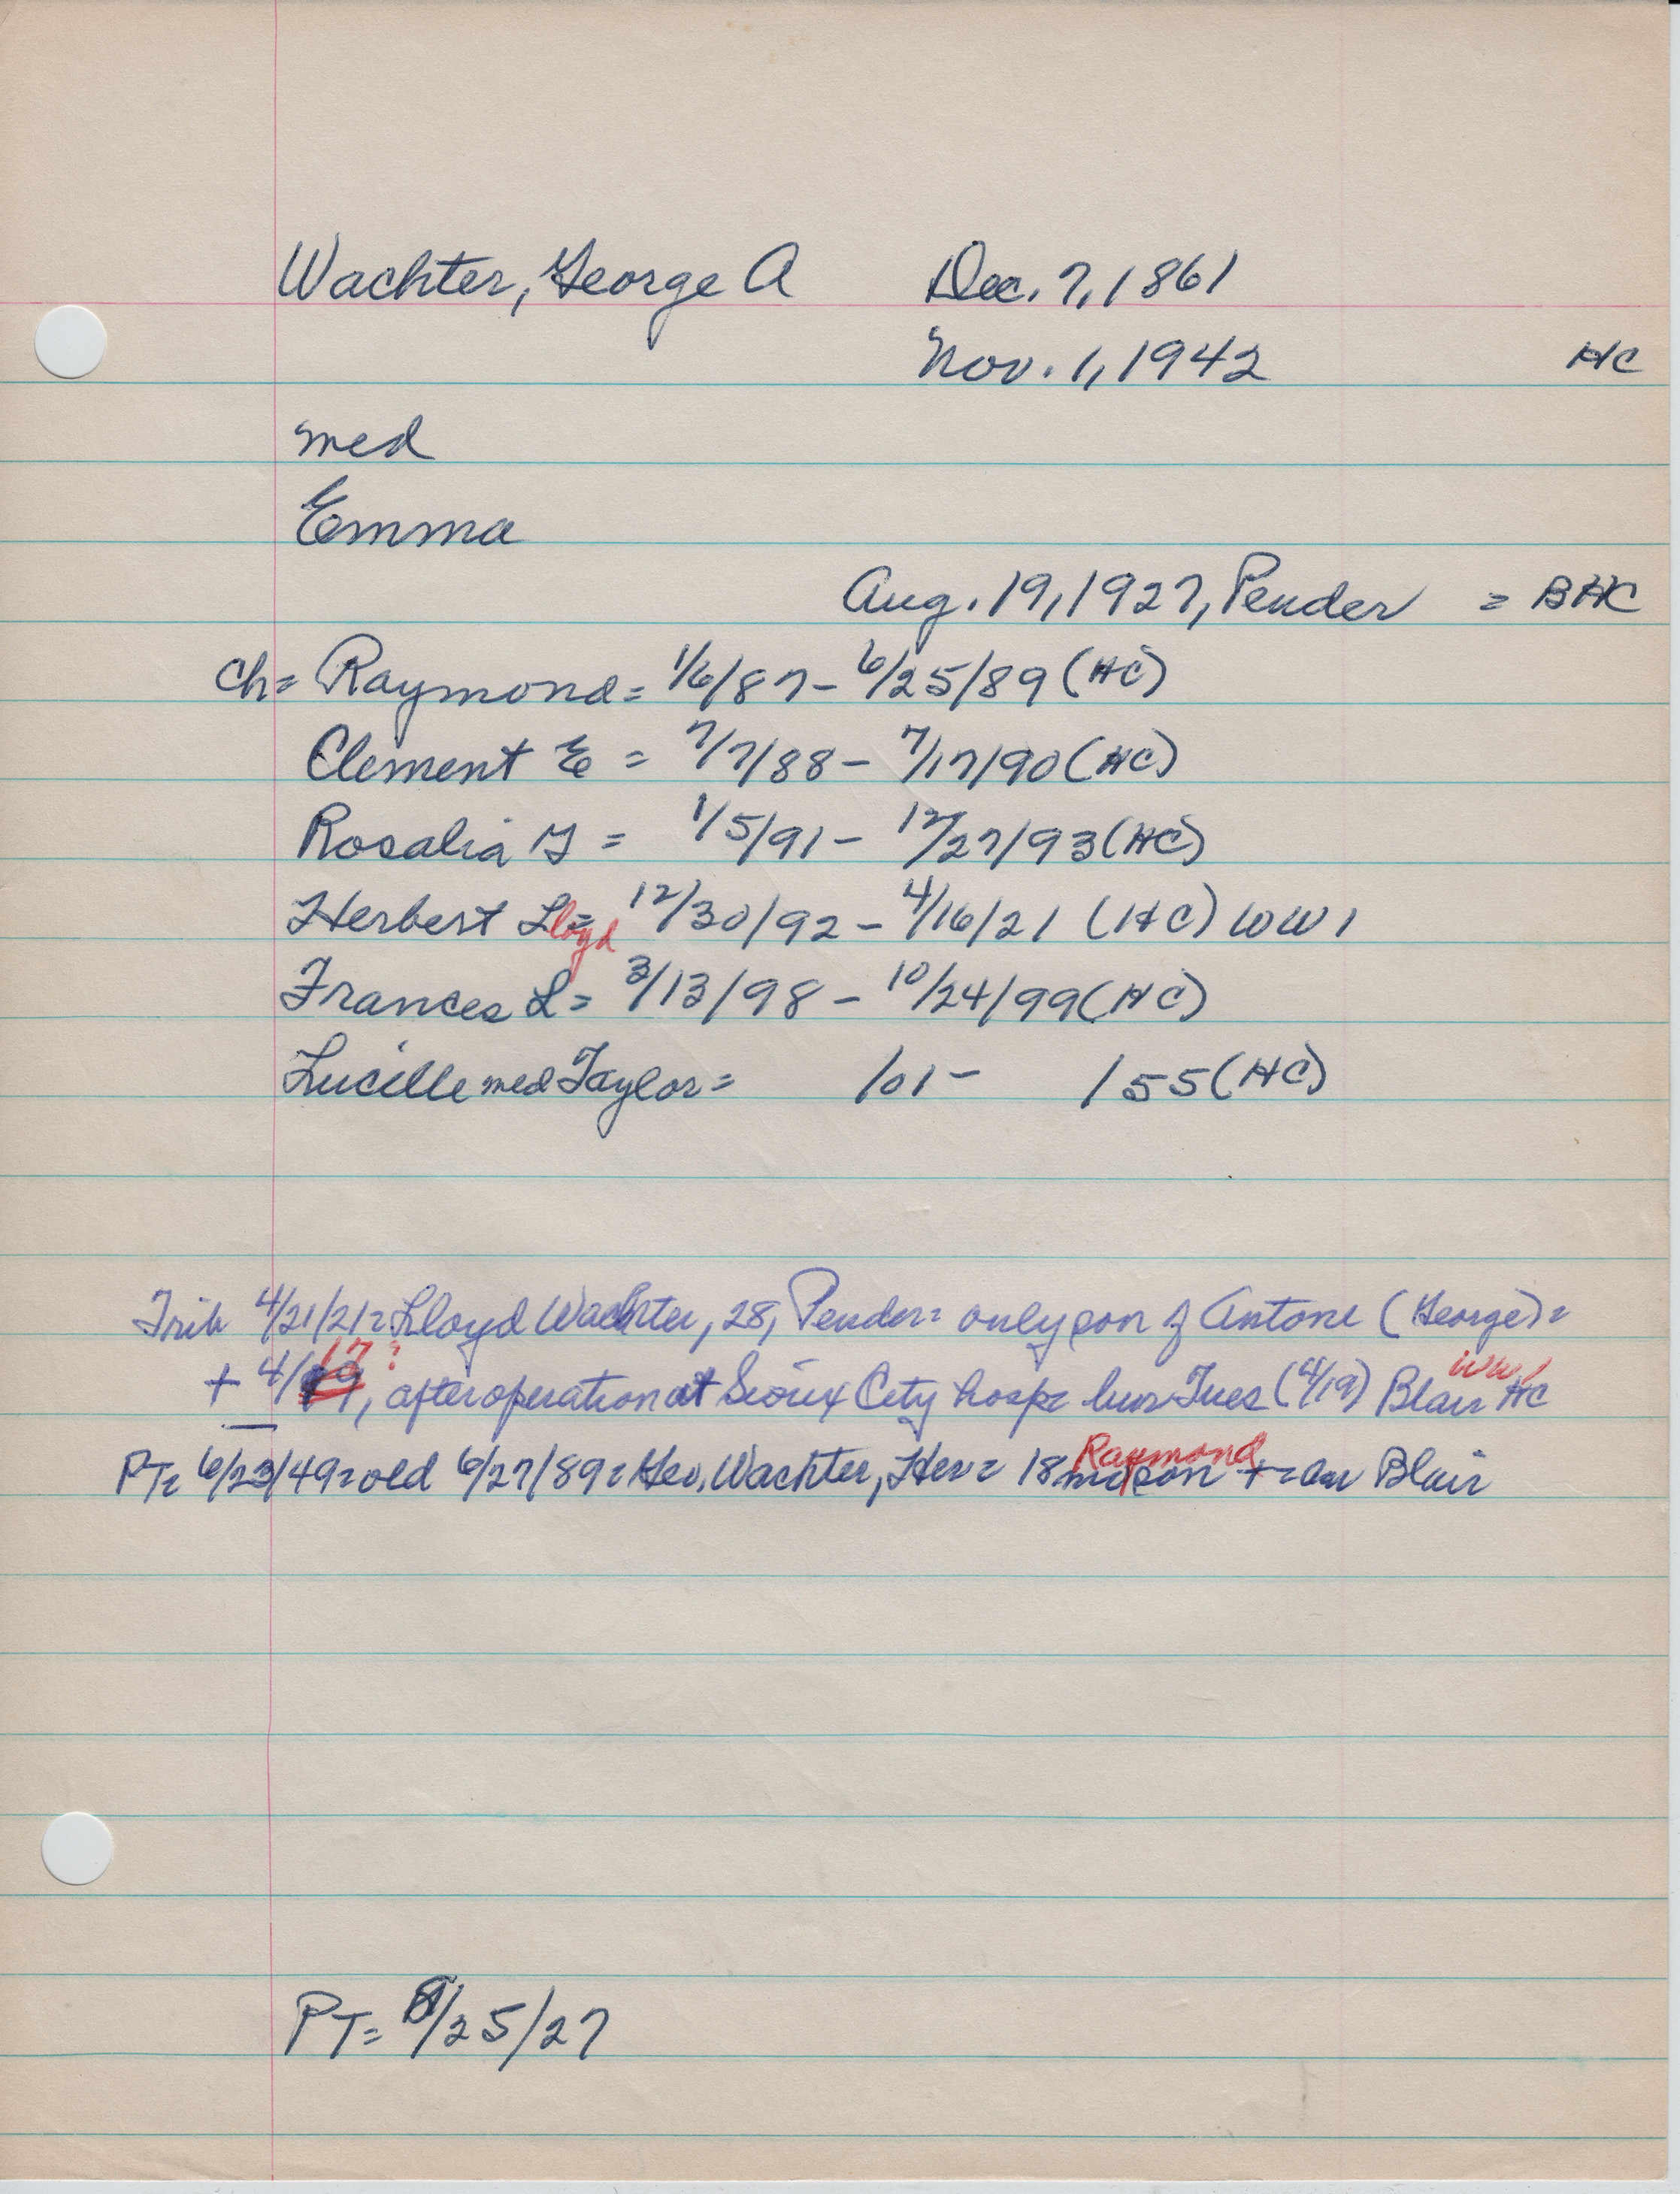 Wachter, George A Dec. 7, 1861
Nov. 1, 1942 HC
med
Emma
Aug. 19, 1927, Pender = BHC
Ch= Raymond= 1/6/87- 6/25/89 (HC)
Clement E = 7/7/88 - 7/17/90 (HC)
Rosalia G = 1/5/91 - 12/27/93 (HC)
Herbert Lloyd= 12/30/92 - 4/16/21 (HC) WW1
Frances L= 3/13/98 - 10/24/99 (HC)
Lucille med Taylor= /01- /55 (HC)
Trib 4/21/21= Lloyd Wachter, 28, Pender= only son of Antone (George)=
17? WW1
+ 4/19, after operation at Sioux City hosp= bur Tues (4/19) Blair HC
Raymond
PT= 6/23/49= old 6/27/89= Geo. Wachter, Her= 18 mo son += bur Blair
PT= 8/25/27